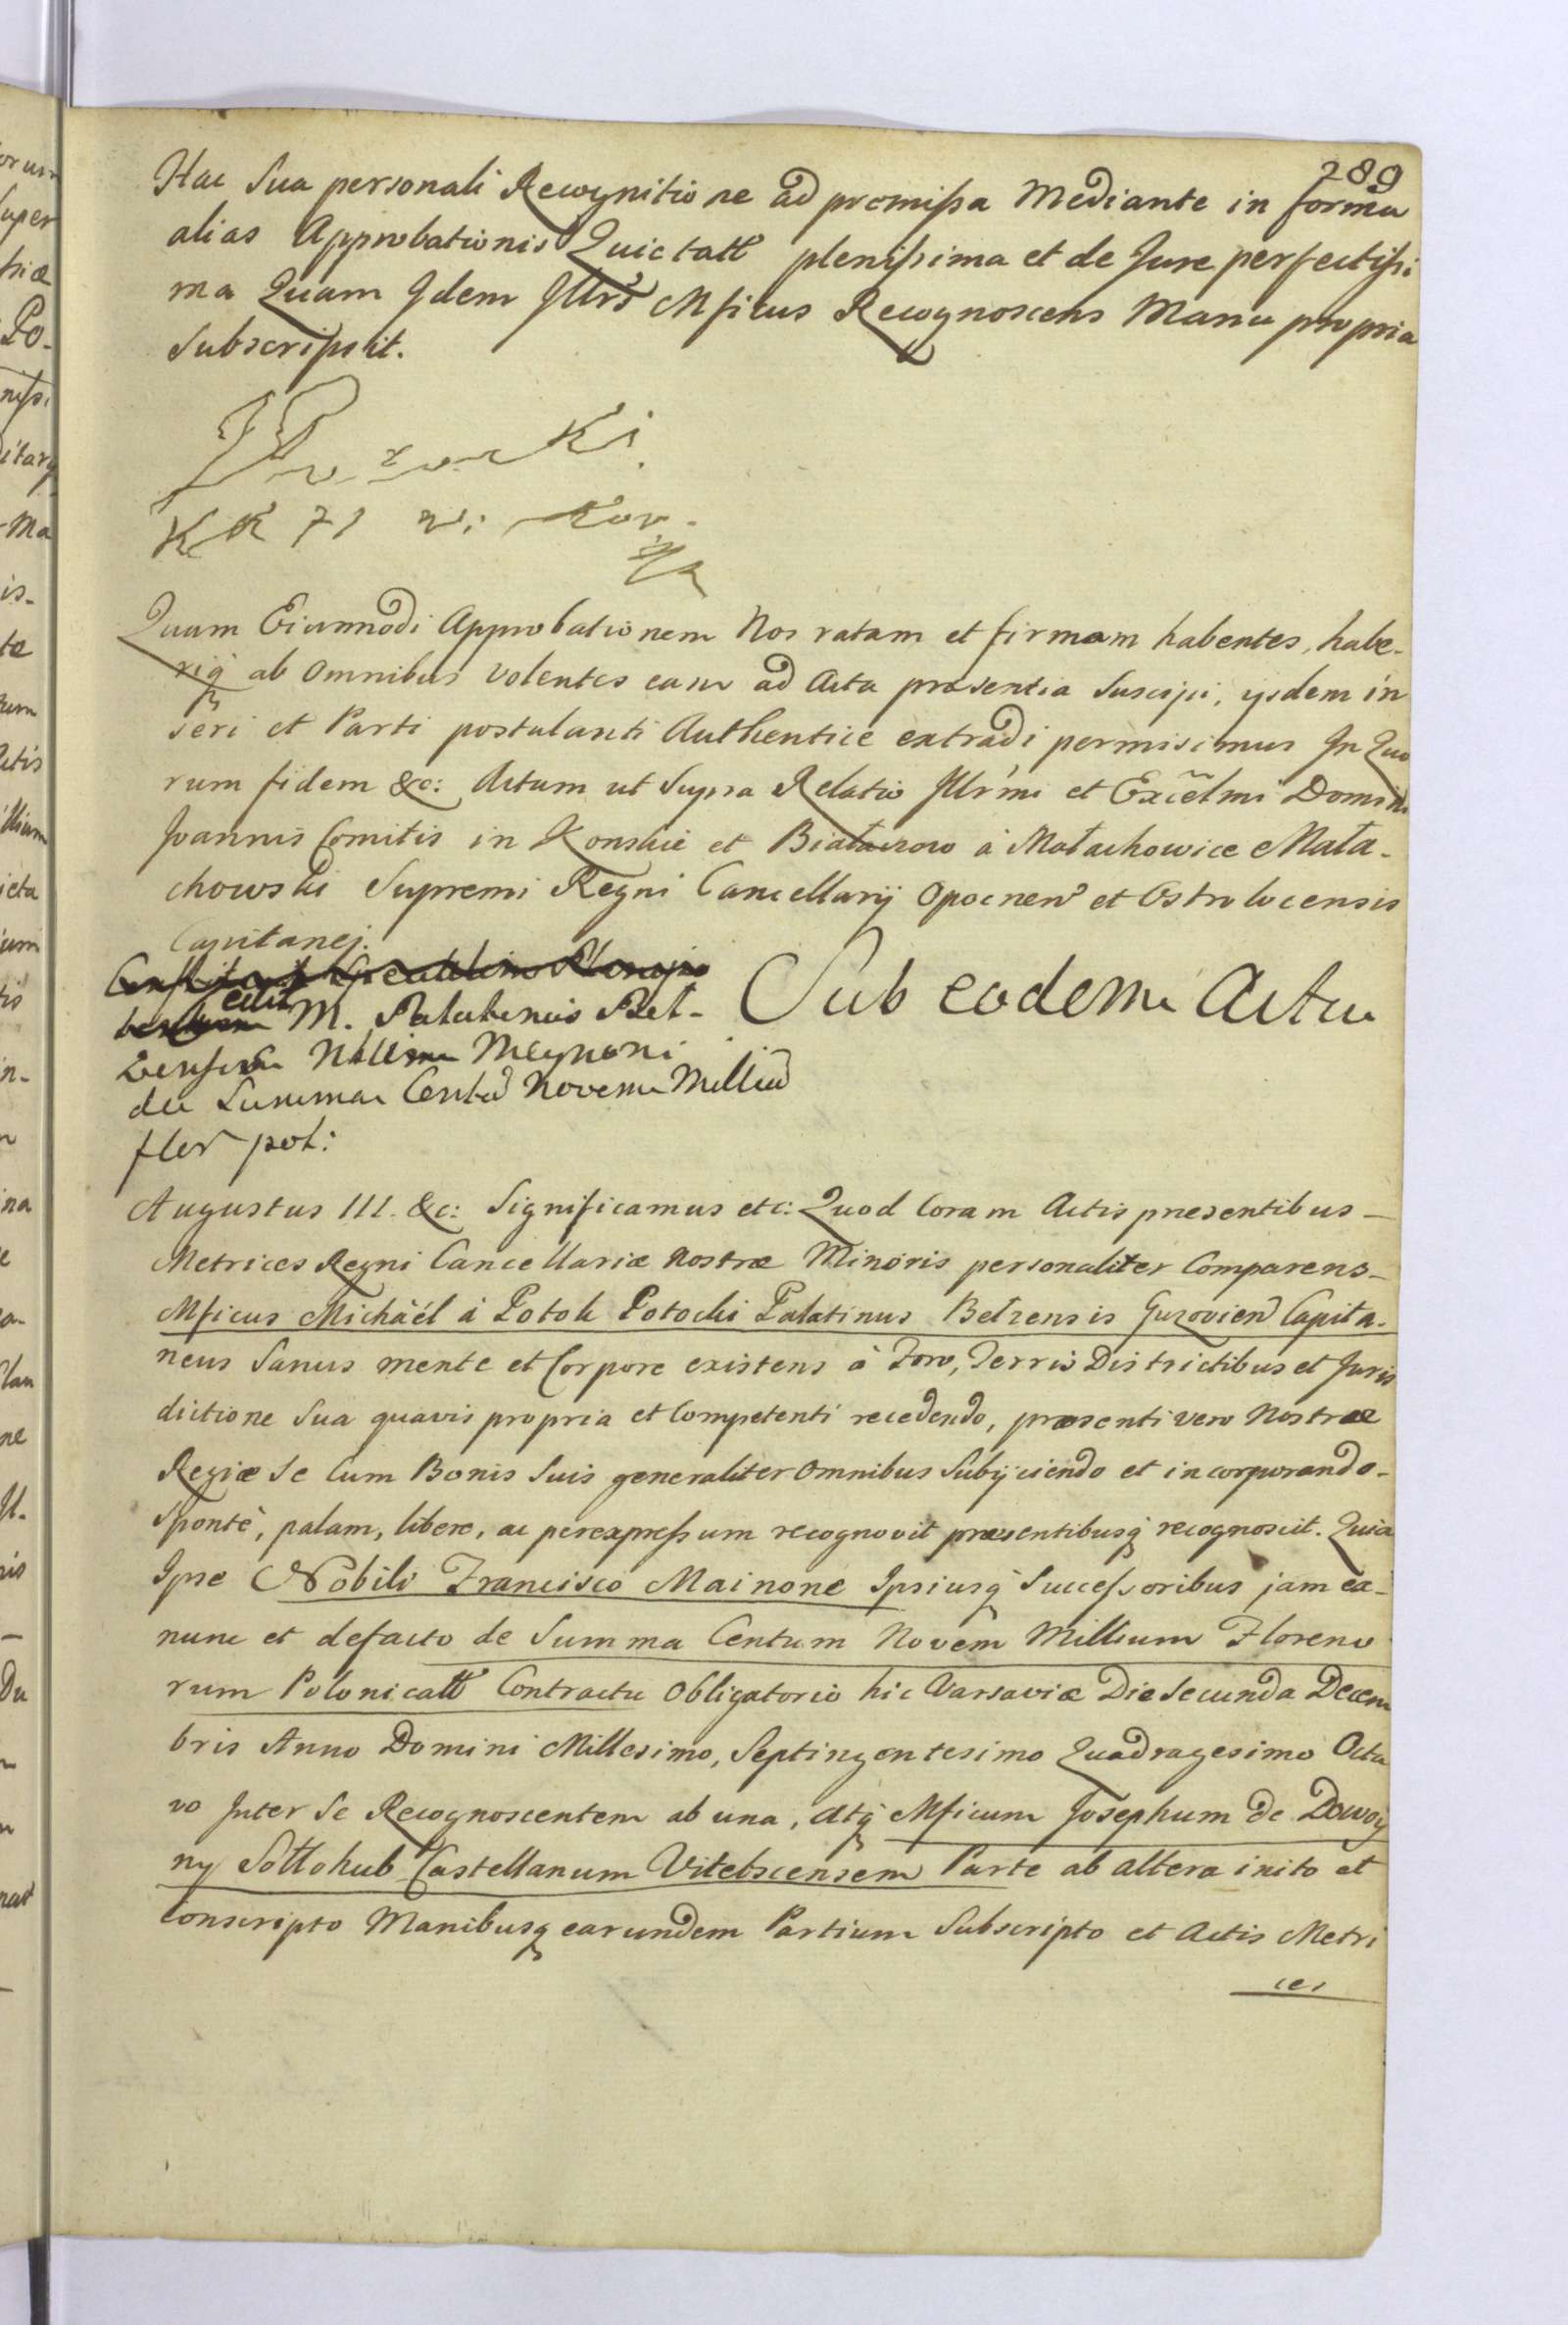 289
Hac Sua personali Recognitione ad promissa Mediante in forma
alias Approbationis Quictatt plenissima et de Jure perfectissi
ma Quam Idem Illrs Mficus Recognoscens Manu propria
Subscripsit.
Quam Eiusmodi Approbationem Nos ratam et firmam habentes, habe-
riq ab Omnibus volentes eam ad Acta præsentia Suscipi, ijsdem in
seri et Parti postulanti Authentice extradi permisimus In Quo
rum fidem &c: Actum ut Supra Relatio Illrmi et Excelmi Domini
Joannis Comitis in Konskie et Białaczow à Małachowice Mała-
chowski Supremi Regni Cancellarij Opocnen et Ostrolocensis
Capitanei.
Sub eodem Actu
M. Palatinus Bel-
de Summa Centu Novem Milliu
flor pol:
Augustus III. &c: Significamus etc: Quod Coram Actis presentibus -
Metrices Regni Cancellariæ Nostræ Minoris personaliter Comparens -
Mficus Michäél à Potok Potocki Palatinus Belzensis Guzovien Capita-
neus Sanus mente et Corpore existens à Foro, Terris Districtibus et Juris
dictione Sua quavis propria et Competenti recedendo, præsenti vero Nostræ
Regiæ Se Cum Bonis Suis generaliter Omnibus Subijciendo et incorporando -
Spontè, palam, libere, ac perexpressum recognovit præsentibusq recognoscit. Quia
Ipse Nobili Francisco Mainone Ipsiusq Successoribus jam ex-
nunc et defacto de Summa Centum Novem Millium Floreno
rum Polonicatt Contractu Obligatorio hic Varsaviæ Die Secunda Decem
bris Anno Domini Millesimo, Septingentesimo Quadragesimo Octa
vo Inter Se Recognoscentem ab una, Atq Mficum Josephum de Dowoy
ny Sołłohub Castellanum Vitebscensem Parte ab altera inito et
Conscripto Manibusq earundem Partium Subscripto et Actis Metri
ces